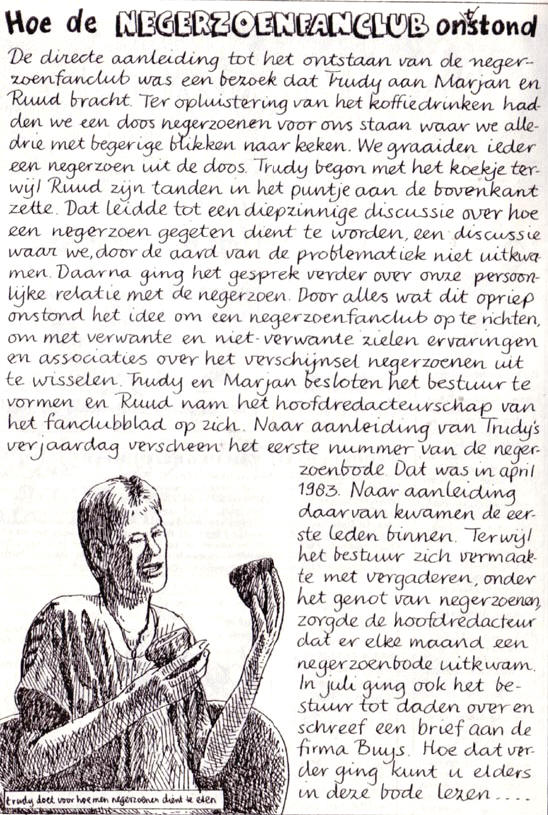 Hoe de NEGERZOENFANCLUB onstond
De directe aanleiding tot het ontstaan van de neger-
zoenfanclub was een bezoek dat Trudy aan Marjan en
Ruud bracht. Ter opluistering van het koffiedrinken had-
den we een doos negerzoenen voor ons staan waar we alle-
drie met begerige blikken naar keken. We graaiden ieder
een negerzoen uit de doos. Trudy begon met het koekje ter-
wijl Ruud zijn tanden in het puntje aan de bovenkant
zette. Dat leidde tot een diepzinnige discussie over hoe
een negerzoen gegeten dient te worden, een discussie
waar we, door de aard van de problematiek niet uitkwa-
men. Daarna ging het gesprek verder over onze persoon-
lijke relatie met de negerzoen. Door alles wat dit opriep
onstond het idee om een negerzoenfanclub op te richten,
om met verwante en niet-verwante zielen ervaringen
en associaties over het verschijnsel negerzoenen uit
te wisselen. Trudy en Marjan besloten het bestuur te
vormen en Ruud nam het hoofdredacteurschap van
het fanclubblad op zich. Naar aanleiding van Trudy's
verjaardag verscheen het eerste nummer van de neger-
zoenbode. Dat was in april
1983. Naar aanleiding
daarvan kwamen de eer-
ste leden binnen. Terwijl
het bestuur zich vermaak-
te met vergaderen, onder
het genot van negerzoenen,
zorgde de hoofdredacteur
dat er elke maand een
negerzoenbode uitkwam.
In juli ging ook het be-
stuur tot daden over en
schreef een brief aan de
firma Buys. Hoe dat ver-
der ging kunt u elders
in deze bode lezen.....
trudy doet voor hoe men negerzoenen dient te eten